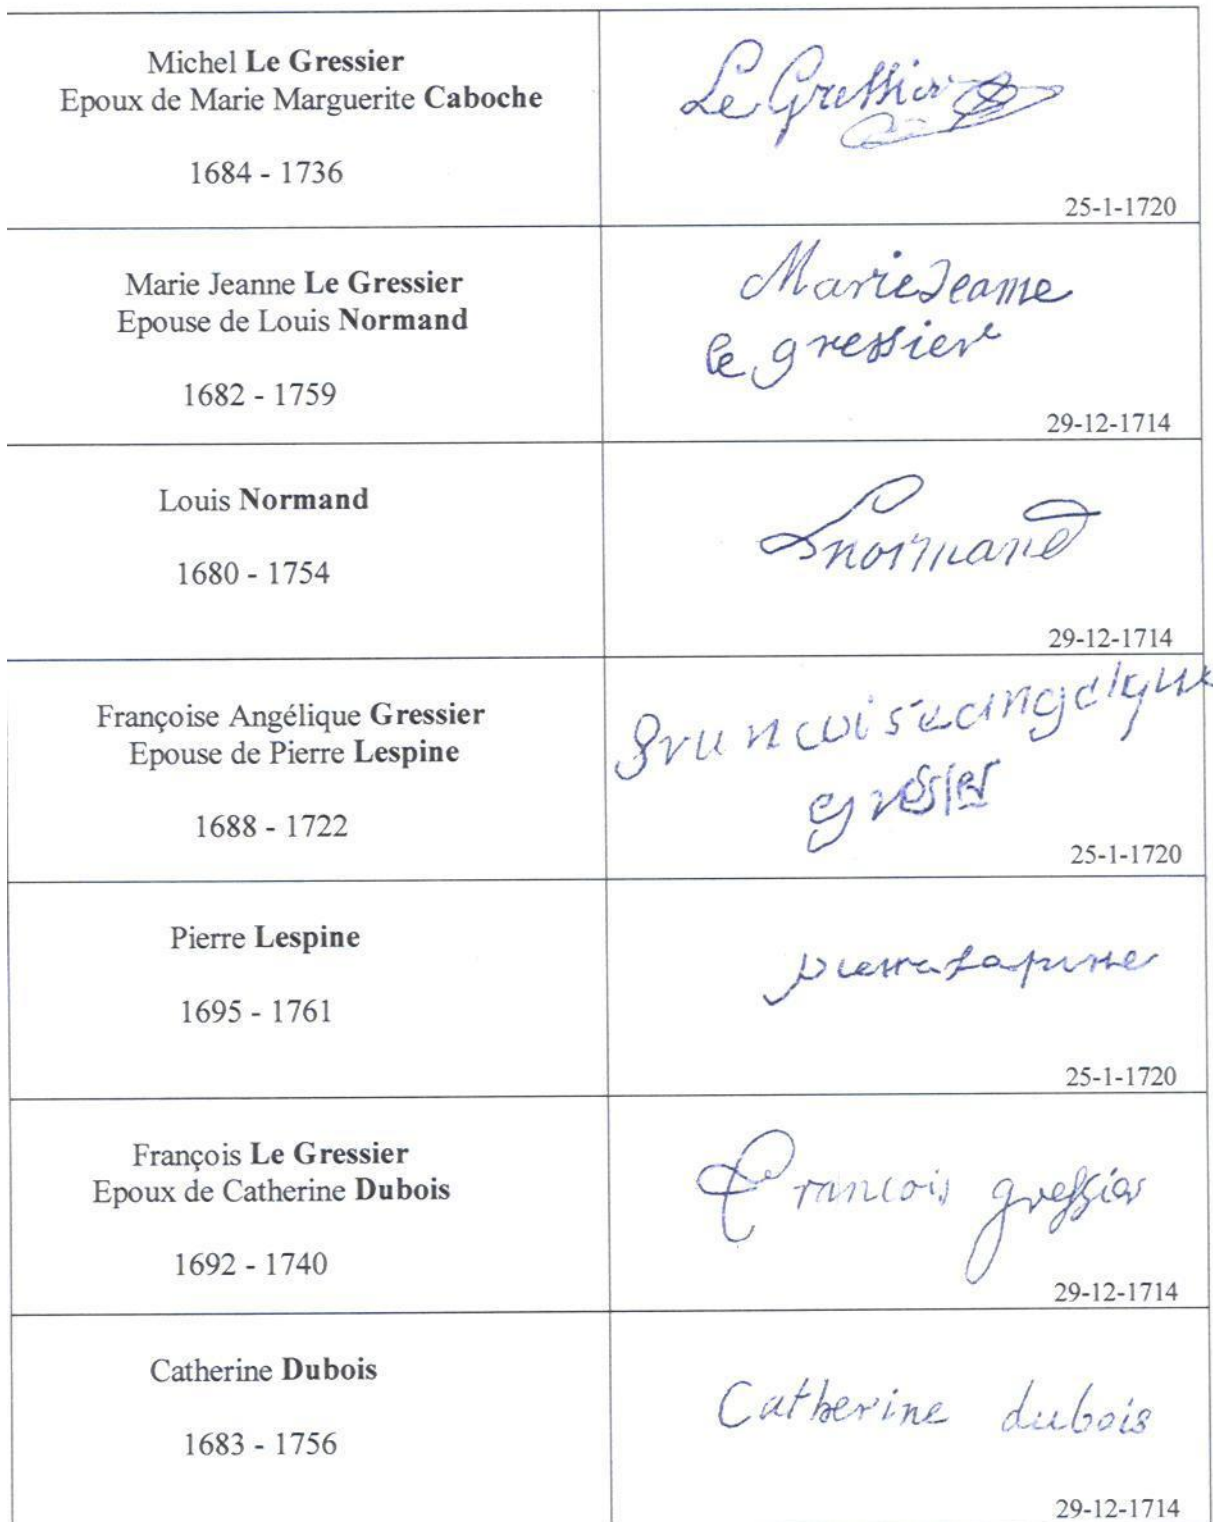 Michel Le Gressier
Epoux de Marie Marguerite Caboche
1684 - 1736
Le Gressier
25-1-1720
Marie Jeanne Le Gressier
Epouse de Louis Normand
1682 - 1759
Marie Jeanne
le gressier
29-12-1714
Louis Normand
1680 - 1754
Lnormand
29-12-1714
Françoise Angélique Gressier
Epouse de Pierre Lespine
1688 - 1722
gressier
25-1-1720
Pierre Lespine
1695 - 1761
25-1-1720
François Le Gressier
Epoux de Catherine Dubois
1692 - 1740
Francois gressier
29-12-1714
Catherine Dubois
1683 - 1756
Catherine dubois
29-12-1714